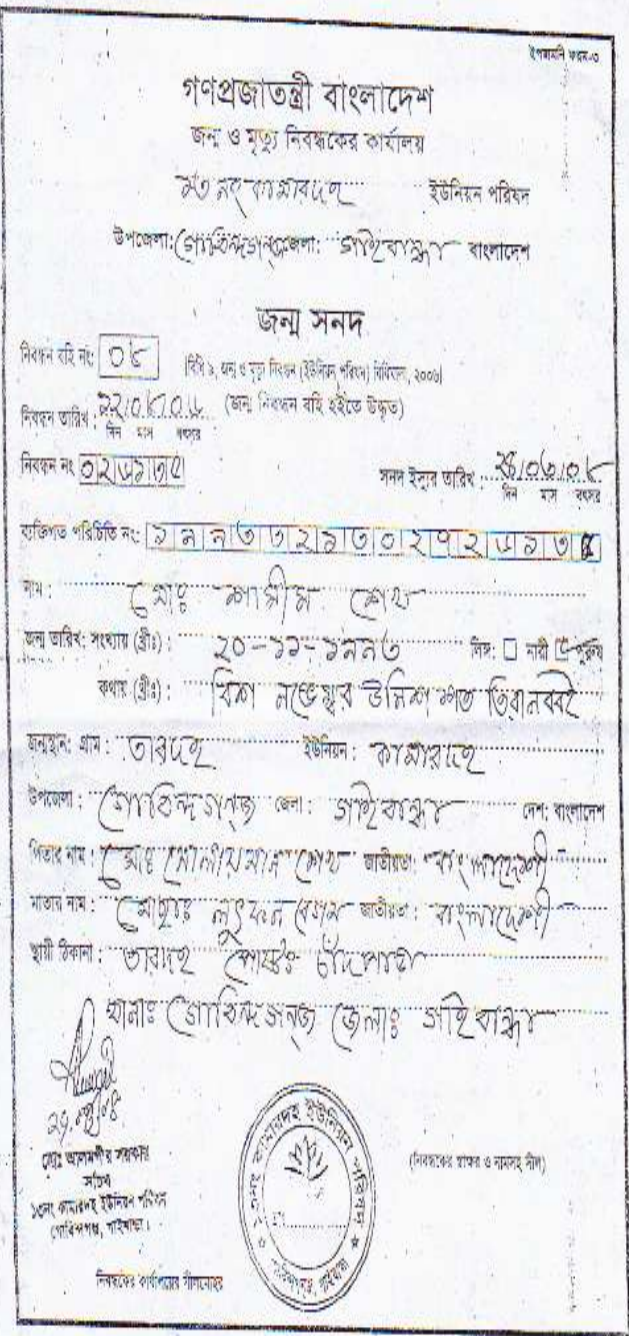 ইপজমনি ফরম-৩
গণপ্রজাতন্ত্রী বাংলাদেশ
জন্ম ও মৃত্যু নিবন্ধকের কার্যালয়
কামারদহ ইউনিয়ন পরিষদ
উপজেলা: গোবিন্দগন্জ জেলা: গাইবান্ধা বাংলাদেশ
জন্ম সনদ
নিবন্ধন বহি নং ০৮
[বিধি ৯, জন্ম ও মৃত্যু নিবন্ধন (ইউনিয়ন পরিষদ) বিধিমালা, ২০০৬]
(জন্ম নিবন্ধন বহি হইতে উদ্ধৃত)
নিবন্ধন তারিখ :
দিন মাস বৎসর
নিবন্ধন নং
সনদ ইস্যুর তারিখ :
দিন মাস বৎসর
ব্যক্তিগত পরিচিতি নং:
নাম : মোঃ শামীম শেখ
জন্ম তারিখ: সংখ্যায় (খ্রীঃ) : ২০-১১-১৯৯৩ লিঙ্গ: নারী পুরুষ
কথায় (খ্রীঃ) : বিশ নভেম্বর উনিশ শত তিরানব্বই
জন্মস্থান: গ্রাম : তারদহ ইউনিয়ন: কামারদহ
উপজেলা : গোবিন্দগন্জ জেলা : গাইবান্ধা দেশ: বাংলাদেশ
পিতার নাম : মোঃ সোলায়মান শেখ জাতীয়তা: বাংলাদেশী
মাতার নাম : মোছাঃ লুৎফন বেগম জাতীয়তা : বাংলাদেশী
স্থায়ী ঠিকানা : তারদহ পোষ্টঃ চাঁদপাড়া
থানাঃ গোবিন্দগন্জ জেলাঃ গাইবান্ধা
মোঃ আলমগীর সরকার
সচিব
১৩নং কামারদহ ইউনিয়ন পরিষদ
গোবিন্দগঞ্জ, গাইবান্ধা।
১৩নং কামারদহ ইউনিয়ন পরিষদ
গোবিন্দগঞ্জ, গাইবান্ধা
(নিবন্ধকের স্বাক্ষর ও নামসহ সীল)
নিবন্ধকের কার্যালয়ের সীলমোহর